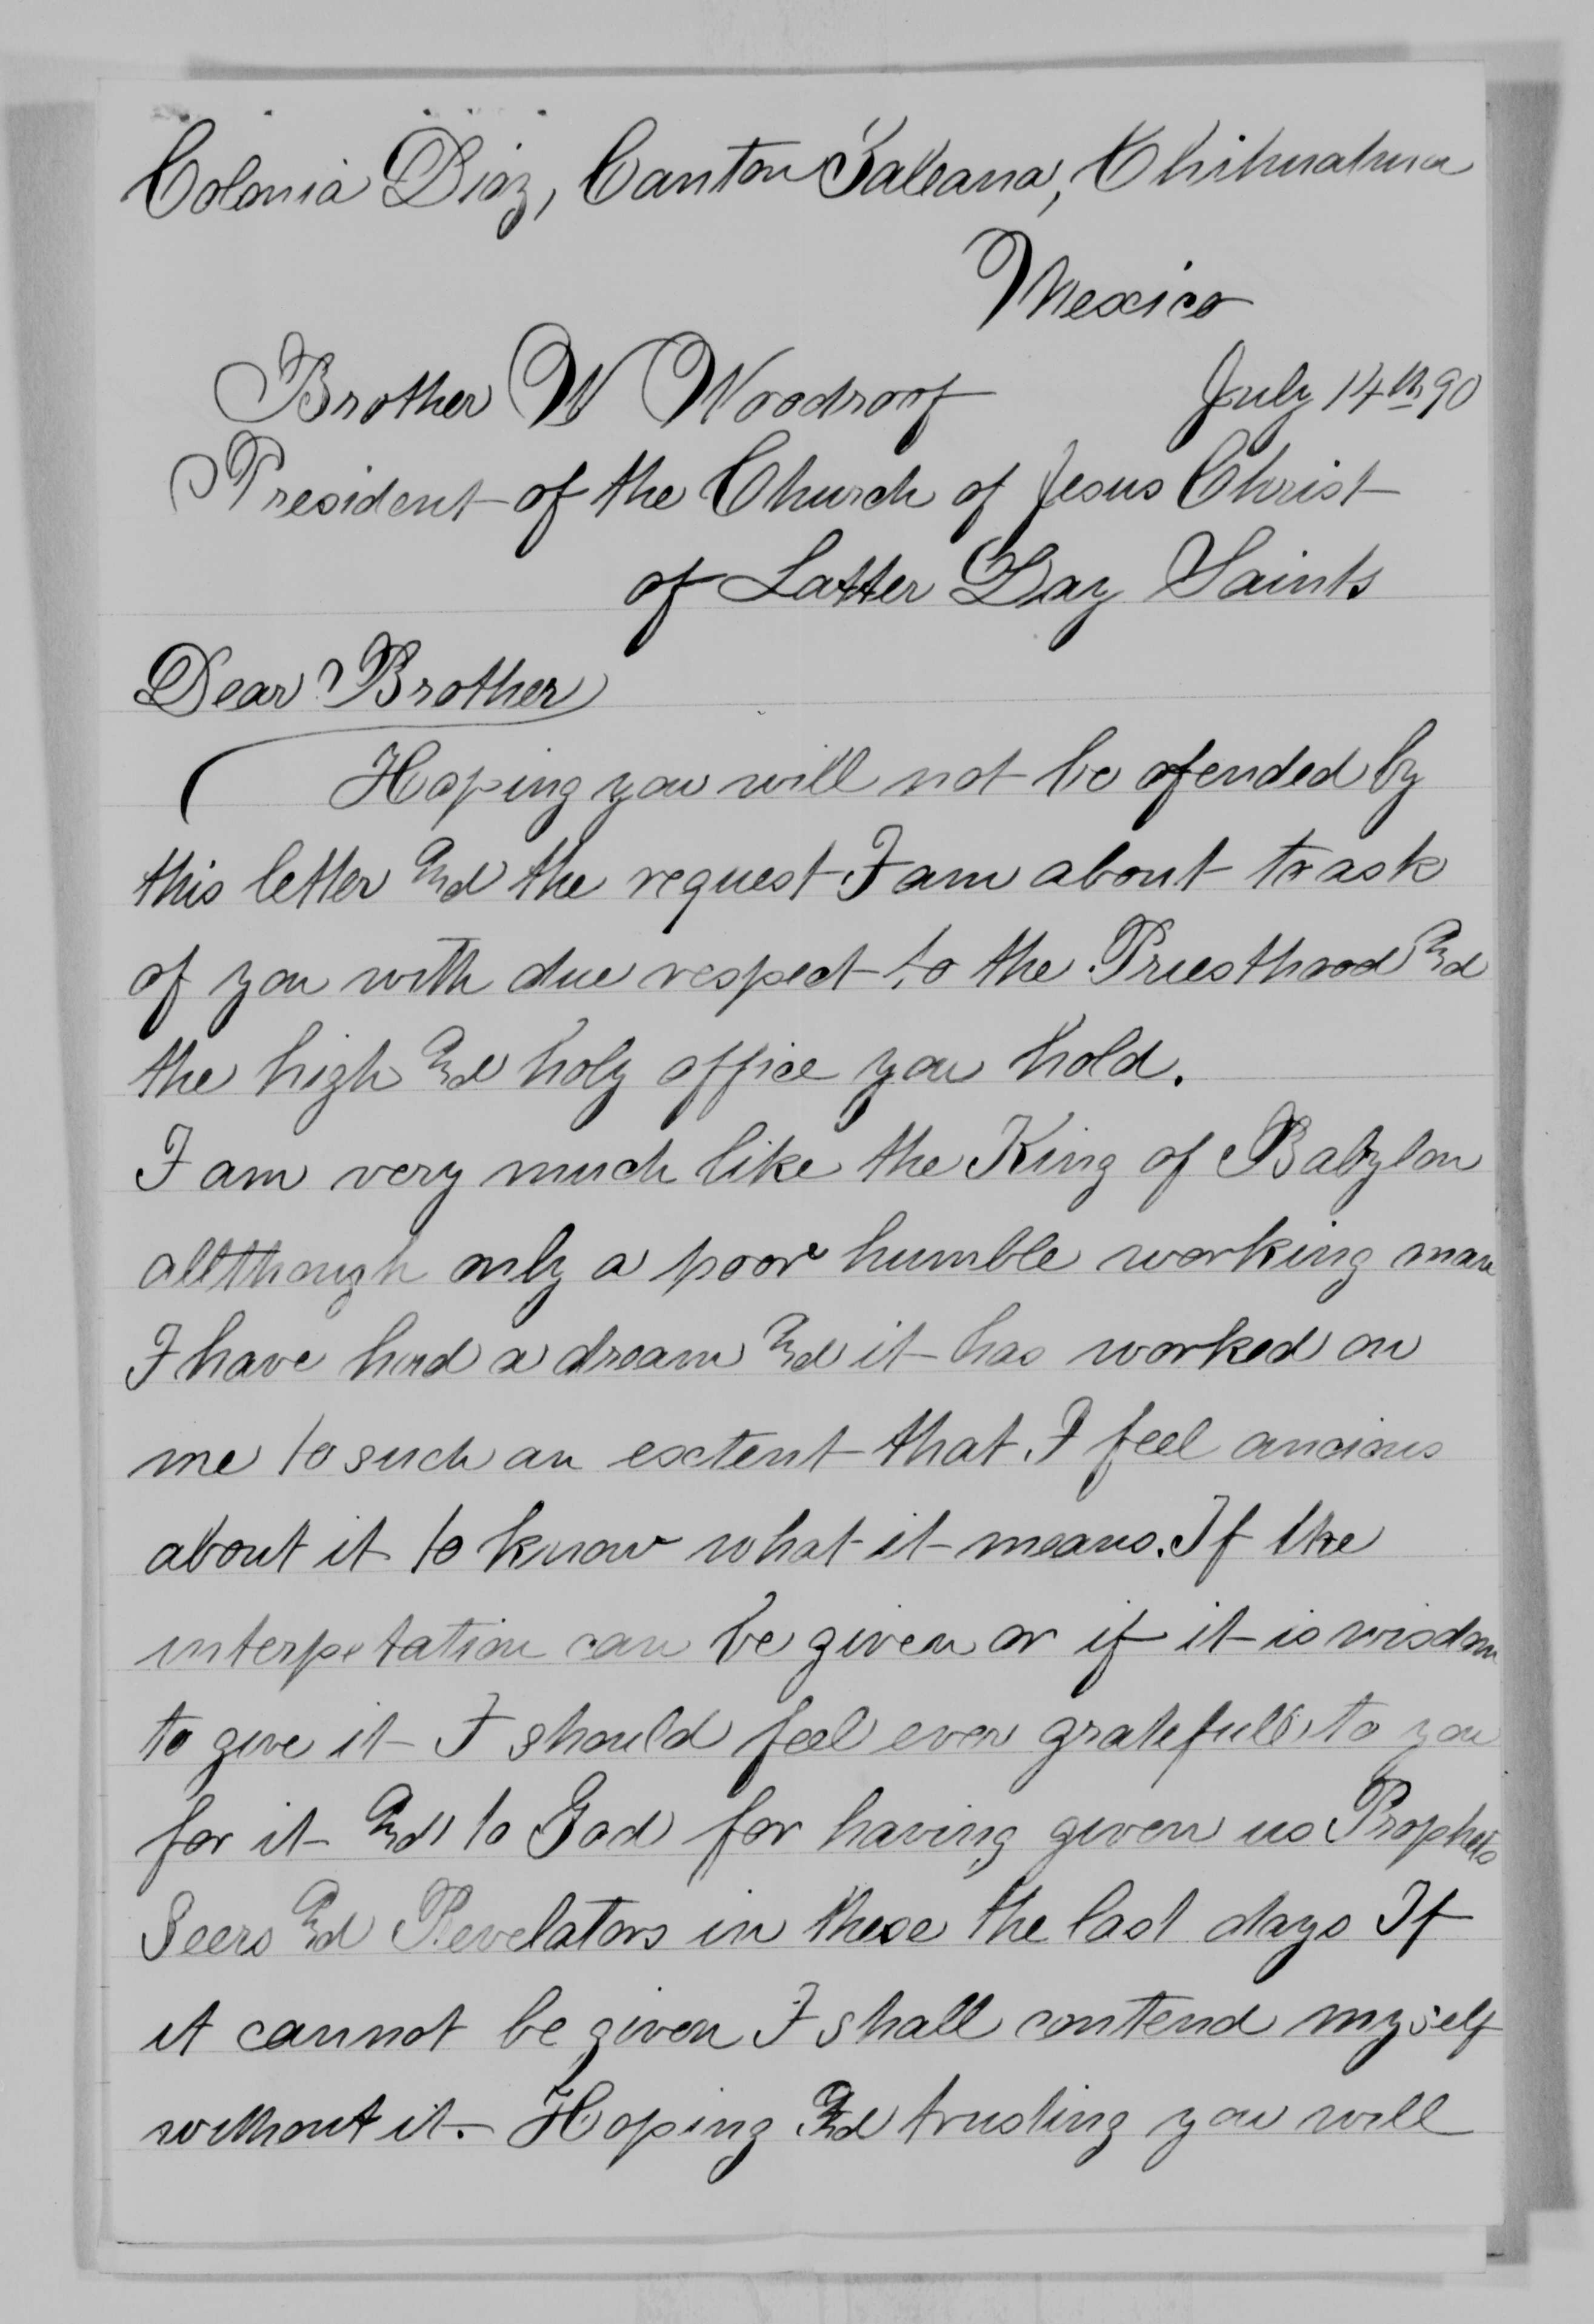 Colonia Diaz, Canton Galeana, Chihuahua
Mexico
Brother W Woodroof July 14th 90
President of the Church of Jesus Christ
of Latter Day Saints
Dear Brother
Hoping you will not be ofended by
this letter And the request I am about to ask
of you with due respect to the Priesthood And
the high And holy office you hold.
I am very much like the King of Babylon
allthough only a poor humble working man
I have had a dream And it has worked on
me to such an extent that I feel ancious
about it to know what it means. If the
interpetation can be given or if it is wisdom
to give it I should feel ever gratefull to you
for it And to God for having given us Prophets
Seers And Revelators in these the last days If
it cannot be given I shall contend myself
without it. Hoping And trusting you will